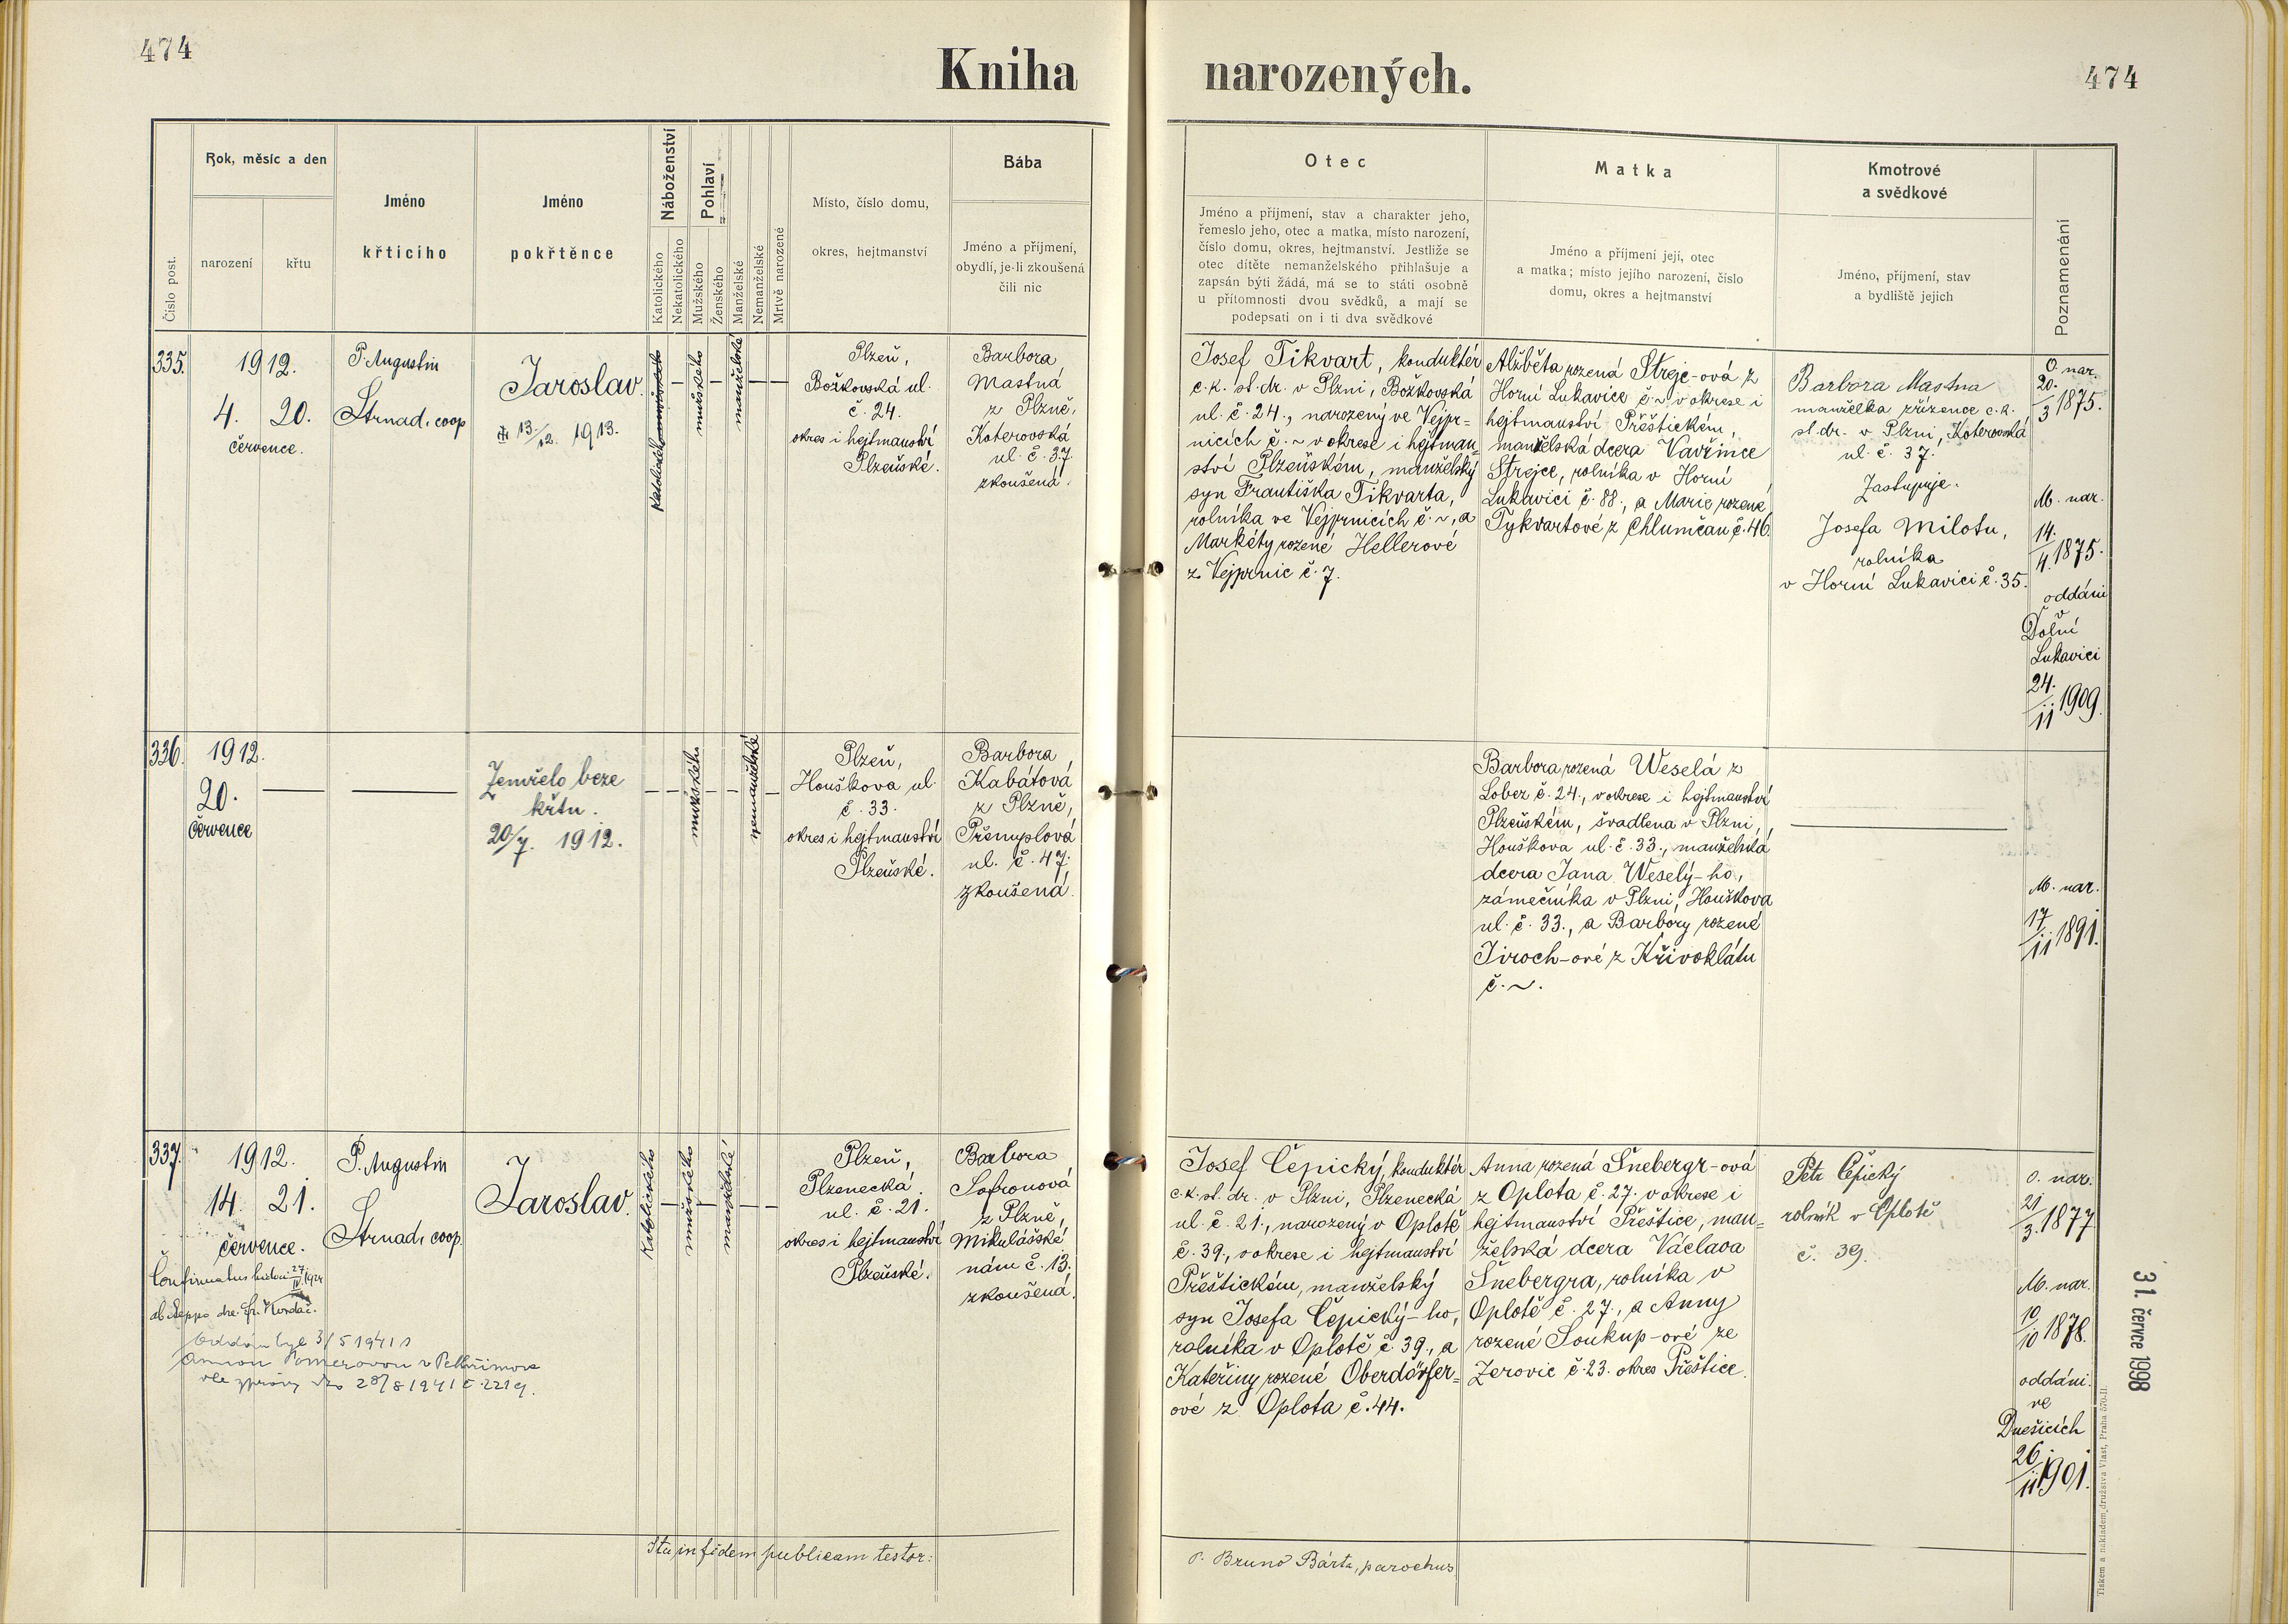 474
Kniha narozených.
474
Číslo post.
Rok, měsíc a den
narození
křtu
Jméno
křticího
Jméno
pokřtěnce
Náboženství
Katolického
Nekatolického
Pohlaví
Mužského
Ženského
Manželské
Nemanželské
Mrtvě narozené
Místo, číslo domu,
okres, hejtmanství
Bába
Jméno a příjmení,
obydlí, je-li zkoušená
čili nic
Otec
Jméno a příjmení, stav a charakter jeho,
řemeslo jeho, otec a matka, místo narození,
číslo domu, okres, hejtmanství. Jestliže se
otec dítěte nemanželského přihlašuje a
zapsán býti žádá, má se to státi osobně
u přítomnosti dvou svědků, a mají se
podepsati on i ti dva svědkové
Matka
Jméno a příjmení její, otec
a matka; místo jejího narození, číslo
domu, okres a hejtmanství
Kmotrové
a svědkové
Jméno, příjmení, stav
a bydliště jejich
Poznamenání
335.
1912.
4. 20.
července.
P. Augustin
Strnad, coop
Jaroslav.
13./12. 1913.
mužského
manželské
Plzeň,
Božkovská ul.
č. 24.
okres i hejtmanství
Plzeňské.
Barbora
Mastná
z Plzně,
Koterovská
ul. č. 37.
zkoušená.
Josef Tikvart, konduktér
c. k. st. dr. v Plzni, Božkovská
ul. č. 24., narozený ve Vejpr=
nicích č. ~ v okrese i hejtman=
ství Plzeňském, manželský
syn Františka Tikvarta,
rolníka ve Vejprnicích č. ~, a
Markéty rozené Hellerové
z Vejprnic č. 7.
Alžběta rozená Strejc-ová z
Horní Lukavice č. ~ v okrese i
hejtmanství Přeštickém,
manželská dcera Vavřince
Strejce, rolníka v Horní
Lukavici č. 88., a Marie rozené
Tykvartové z Chlumčan č. 46.
Barbora Mastna
manželka zřízence c. k.
st. dr. v Plzni, Koterovská
ul. č. 37.
Zastupuje.
Josefa Milotu,
rolníka
v Horní Lukavici č. 35.
O. nar.
20./3 1875.
M. nar.
14./4. 1875.
oddáni
v
Dolní
Lukavici
24./11 1909.
336.
1912.
20.
července
Zemřelo beze
křtu.
20/7. 1912.
mužského
nemanželské
Plzeň,
Houškova ul.
č. 33.
okres i hejtmanství
Plzeňské.
Barbora
Kabátová
z Plzně,
Přemyslová
ul. č. 47.
zkoušená.
Barbora rozená Weselá z
Lobez č. 24., v okrese i hejtmanství
Plzeňském, švadlena v Plzni,
Houškova ul. č. 33., manželská
dcera Jana Weselý-ho,
zámečníka v Plzni, Houškova
ul. č. 33., a Barbory rozené
Jiroch-ové z Křivoklátu
č. ~.
M. nar.
17/11 1891.
337.
1912.
14. 21.
července.
P. Augustin
Strnad, coop
Jaroslav.
Katolického
mužského
manželské
Plzeň,
Plzenecká
ul. č. 21.
okres i hejtmanství
Plzeňské.
Barbora
Sofronová
z Plzně,
Mikulášské
nám č. 13.
zkoušená.
Josef Čepický, konduktér
c. k. st. dr. v Plzni, Plzenecká
ul. č. 21., narozený v Oplotě
č. 39., v okrese i hejtmanství
Přeštickém, manželský
syn Josefa Čepický-ho,
rolníka v Oplotě č. 39., a
Kateřiny rozené Oberdörfer=
ové z Oplota č. 44.
Anna rozená Šnebergr-ová
z Oplota č. 27. v okrese i
hejtmanství Přeštice, man=
želská dcera Václava
Šnebergra, rolníka v
Oplotě č. 27., a Anny
rozené Soukup-ové ze
Zerovic č. 23. okres Přeštice.
Petr Čepický
rolník v Oplotě
č. 39.
O. nar.
21/3. 1877
M. nar.
10/10 1878.
oddáni
ve
Dnešicích
26./11 1901.
Confirmatus 27/IV. 1924
ab Aeppo dre. Fr. Kordač.
Oddán byl 3/5 1941 s
Annou Pomerovou v Pelhřimově
dle zprávy dto 28/8 1941 č. 2219.
Ita in fidem publicam testor:
P. Bruno Bárta, parochus
31. červe 1998
Tiskem a nákladem družstva Vlast, Praha 570-II.